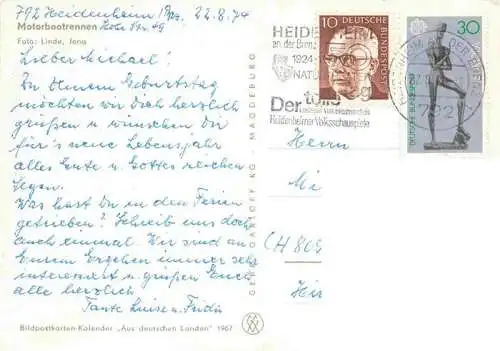 792 Heidenheim Brz, 22.8.74
Motorbootrennen
Foto: Linde, Jena
Lieber Michael!
Zu Deinem Geburtstag
möchten wir Dich herzlich
grüßen u. wünschen Dir
für's neue Lebensjahr
alles Gute u. Gottes reichen
Segen.
Was hast Du in den Ferien
getrieben? Schreib uns doch
auch einmal. Wir sind an
Eurem Ergehen immer sehr
interessiert u. grüßen Euch
alle herzlich
Tante Luise u. Fridi
Bildpostkarten-Kalender „Aus deutschen Landen" 1967
GEBR. GARLOFF KG MAGDEBURG
HEIDE
an der Brenz
1924
NATU
Der tolle
Heidenheimer Volksschauspiele
10 DEUTSCHE BUNDESPOST
30
DEUTSCHE BUNDESPOST
792
Herrn
Mi
CH 805
Hir